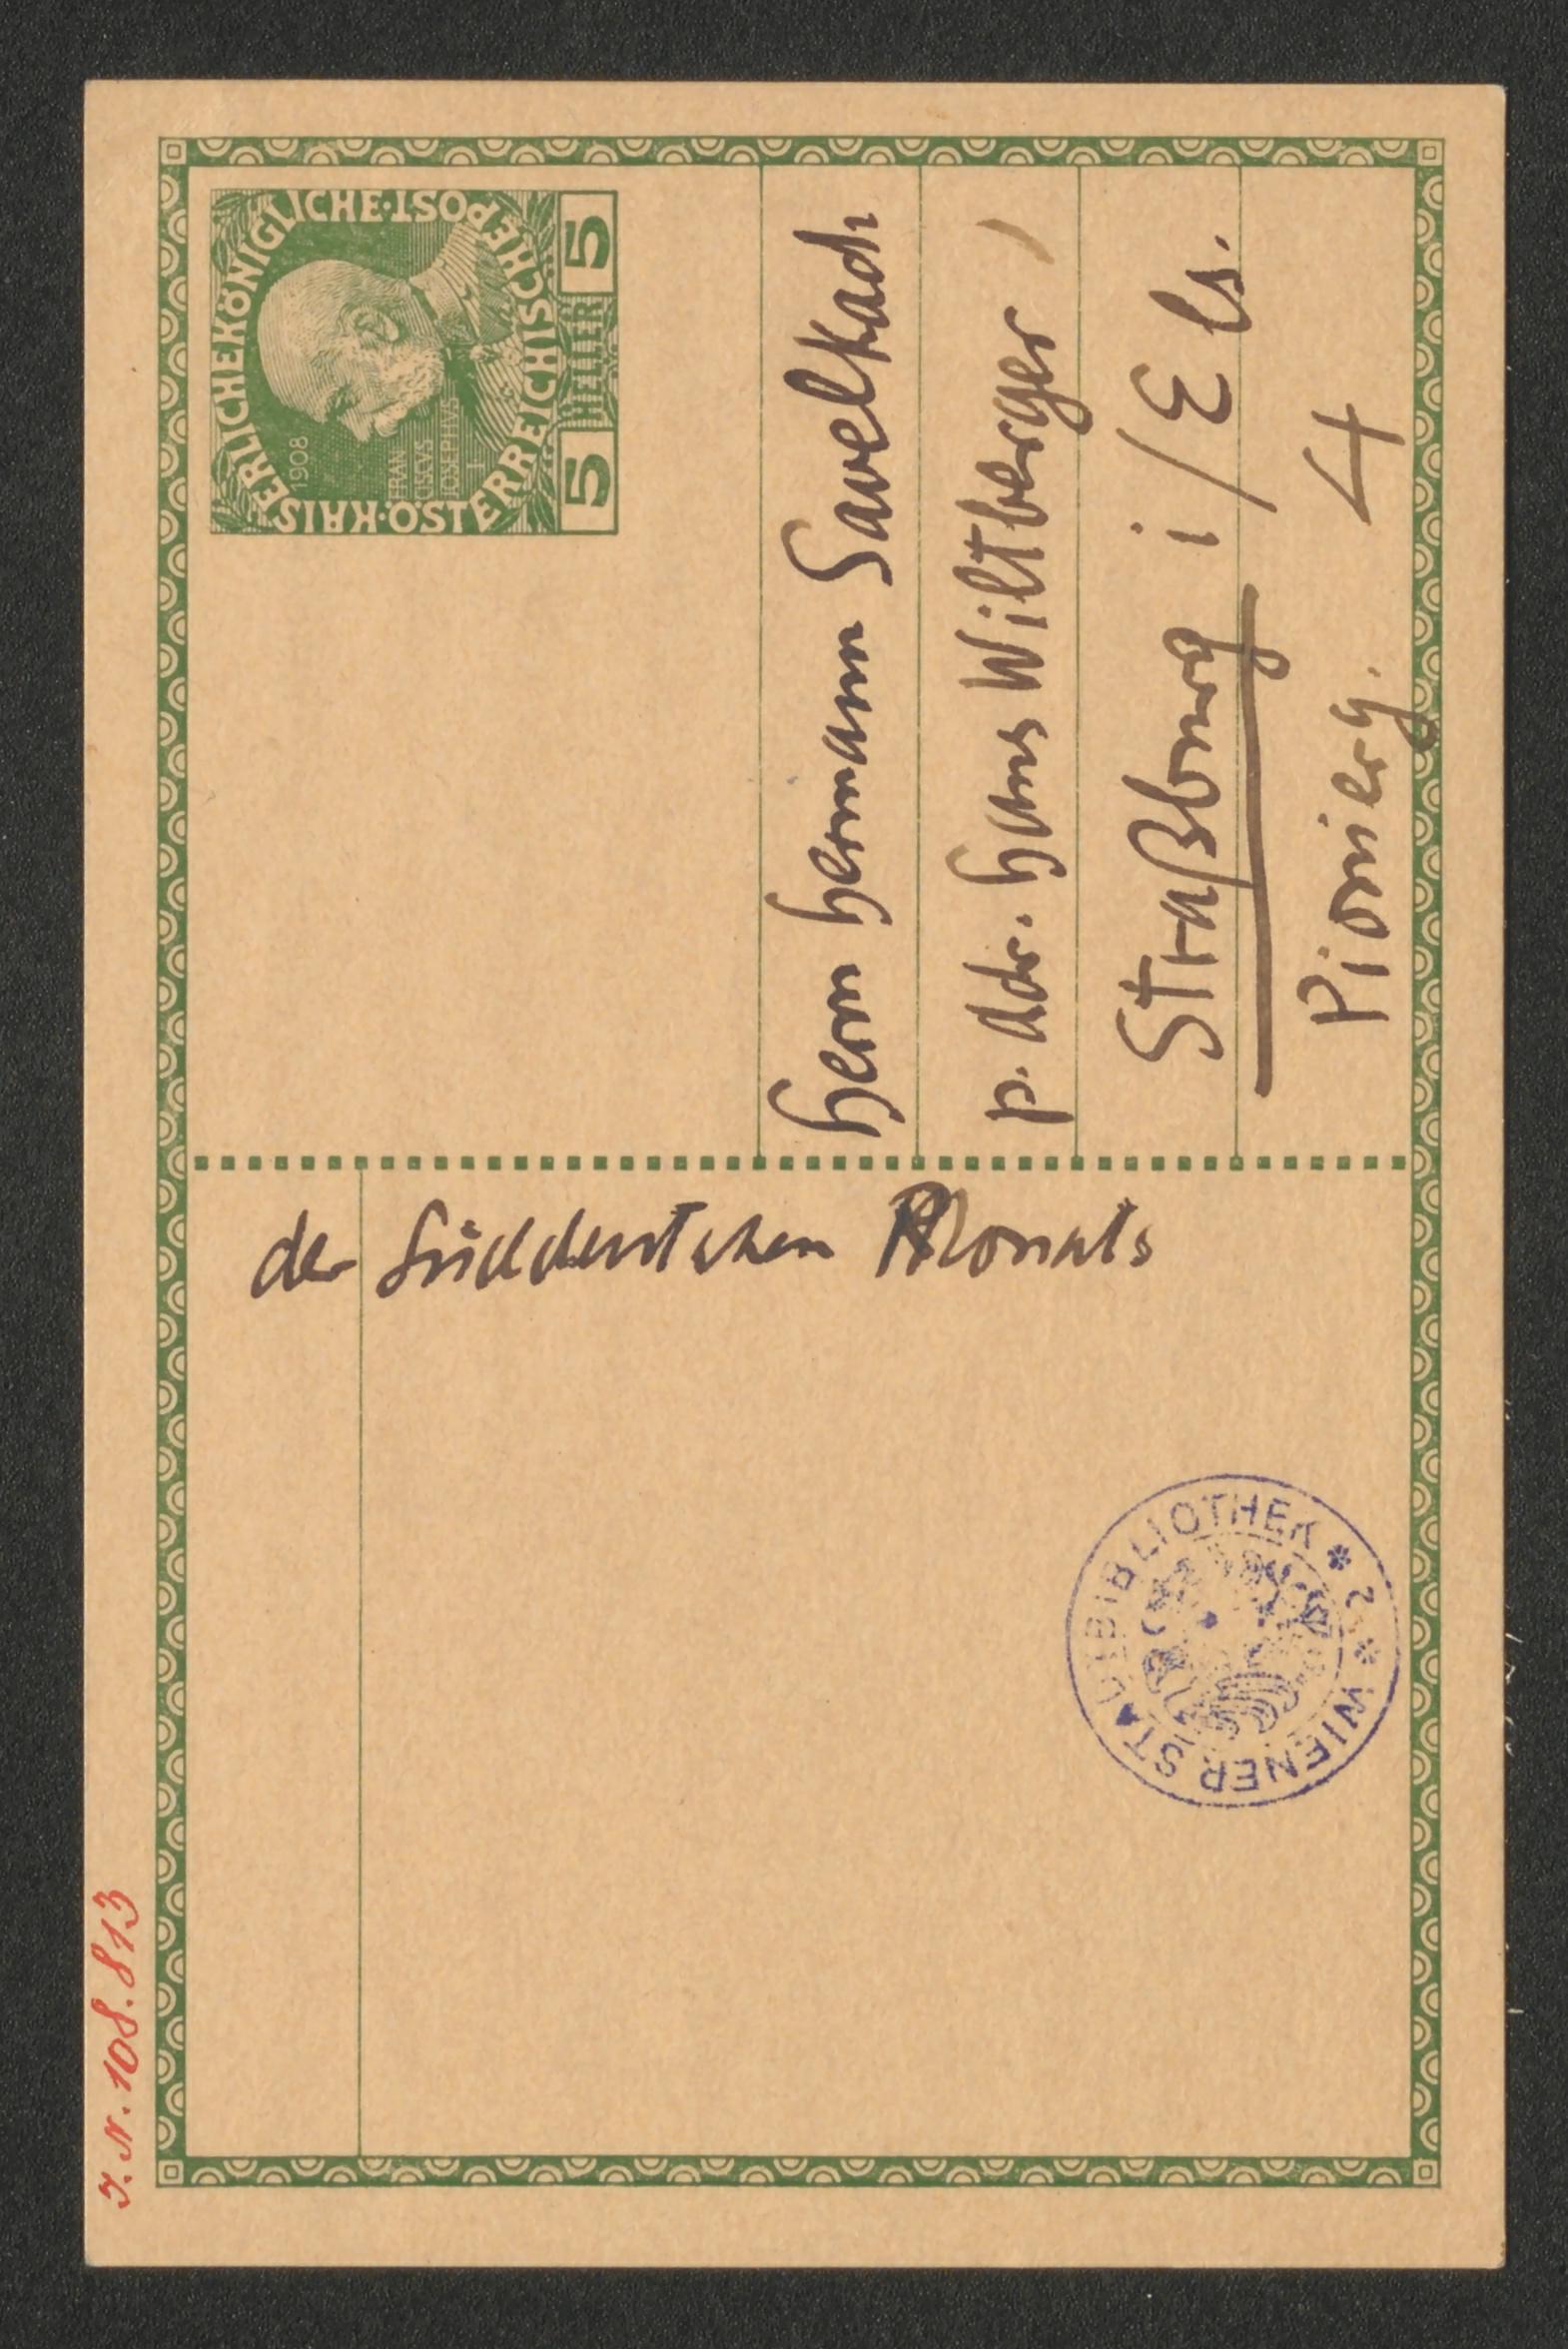 KAISERLICHEKÖNIGLICHE·
ÖSTERREICHISCHEPOST·
1908
FRAN
CISCVS
IOSEPHVS
I
5 HELLER 5
Herrn Hermann Sawelkach
p. Adr. Hans Wiltberger
Straßburg i/Els.
Pionierg. 4
der Süddeutschen Monats
WIENER STADTBIBLIOTHEK * 2 *
J. N. 108.813